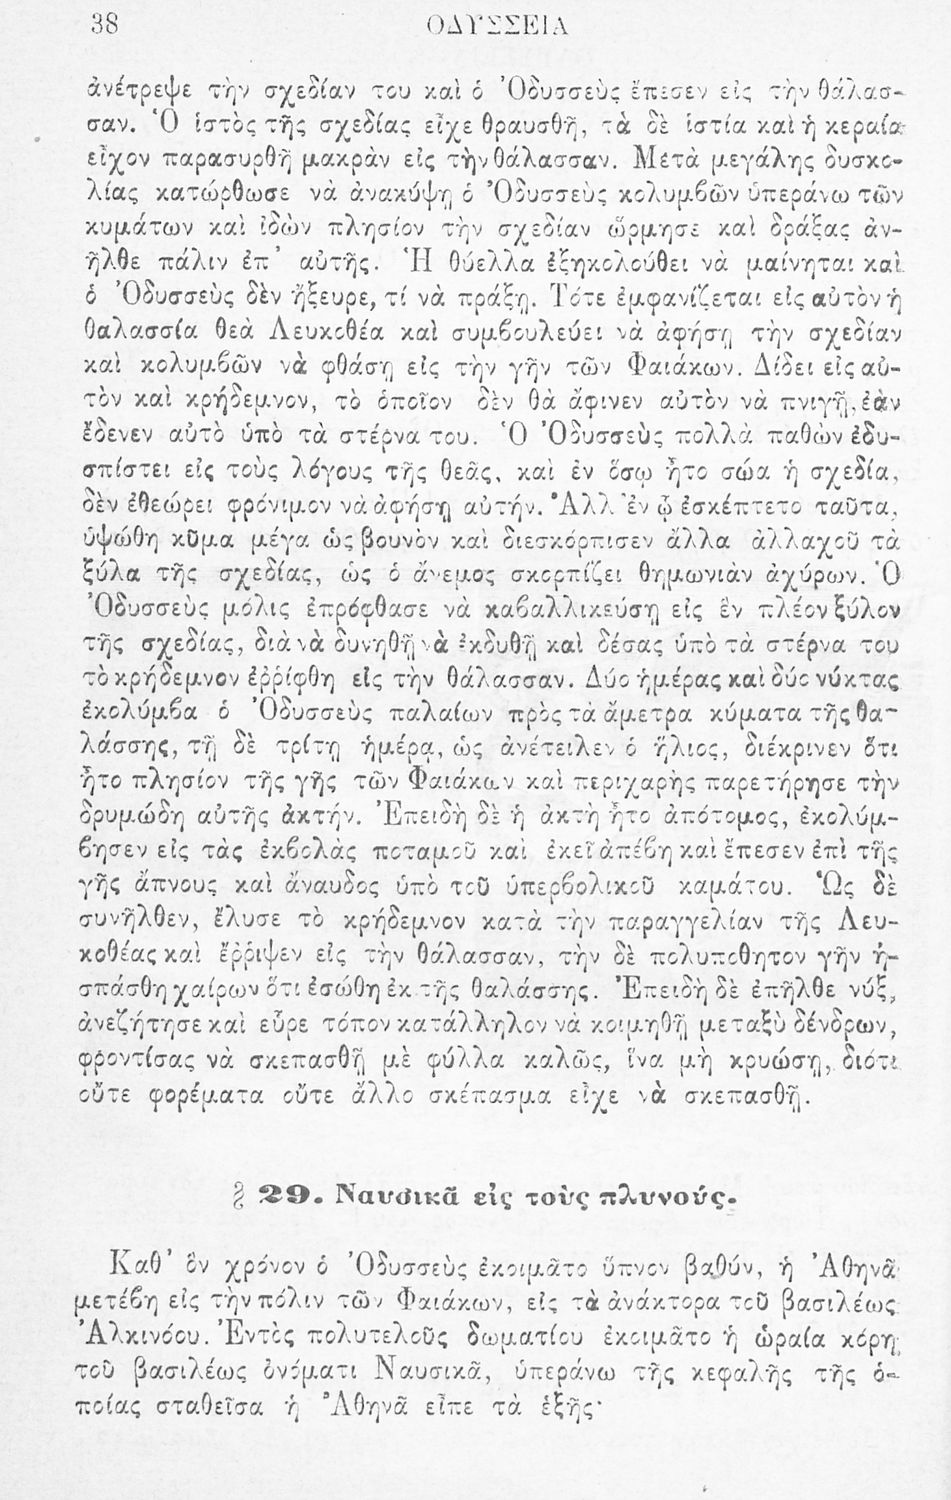 38
ΟΔΥΣΣΕΙΑ
ἀνέτρεψε τὴν σχεδίαν του καὶ ὁ Ὀδυσσεὺς ἔπεσεν εἰς τὴν θάλασ-
σαν. Ὁ ἱστὸς τῆς σχεδίας εἶχε θραυσθῆ, τὰ δὲ ἱστία καὶ ἡ κεραία
εἶχον παρασυρθῆ μακρὰν εἰς τὴν θάλασσαν. Μετὰ μεγάλης δυσκο-
λίας κατώρθωσε νὰ ἀνακύψῃ ὁ Ὀδυσσεὺς κολυμβῶν ὑπεράνω τῶν
κυμάτων καὶ ἰδὼν πλησίον τὴν σχεδίαν ὥρμησε καὶ δράξας ἀν-
ῆλθε πάλιν ἐπ' αὐτῆς. Ἡ θύελλα ἐξηκολούθει νὰ μαίνηται καὶ
ὁ Ὀδυσσεὺς δὲν ἤξευρε, τί νὰ πράξῃ. Τότε ἐμφανίζεται εἰς αὐτὸν ἡ
θαλασσία θεὰ Λευκοθέα καὶ συμβουλεύει νὰ ἀφήσῃ τὴν σχεδίαν
καὶ κολυμβῶν νὰ φθάσῃ εἰς τὴν γῆν τῶν Φαιάκων. Δίδει εἰς αὐ-
τὸν καὶ κρήδεμνον, τὸ ὁποῖον δὲν θὰ ἄφινεν αὐτὸν νὰ πνιγῇ, ἐὰν
ἔδενεν αὐτὸ ὑπὸ τὰ στέρνα του. Ὁ Ὀδυσσεὺς πολλὰ παθὼν ἐδυ-
σπίστει εἰς τοὺς λόγους τῆς θεᾶς, καὶ ἐν ὅσῳ ἦτο σώα ἡ σχεδία,
δὲν ἐθεώρει φρόνιμον νὰ ἀφήσῃ αὐτήν. Ἀλλ' ἐν ᾧ ἐσκέπτετο ταῦτα,
ὑψώθη κῦμα μέγα ὡς βουνὸν καὶ διεσκόρπισεν ἄλλα ἀλλαχοῦ τὰ
ξύλα τῆς σχεδίας, ὡς ὁ ἄνεμος σκορπίζει θημωνιὰν ἀχύρων. Ὁ
Ὀδυσσεὺς μόλις ἐπρόφθασε νὰ καβαλλικεύσῃ εἰς ἓν πλέον ξύλον
τῆς σχεδίας, διὰ νὰ δυνηθῇ νὰ ἐκδυθῇ καὶ δέσας ὑπὸ τὰ στέρνα του
τὸ κρήδεμνον ἐῤῥίφθη εἰς τὴν θάλασσαν. Δύο ἡμέρας καὶ δύο νύκτας
ἐκολύμβα ὁ Ὀδυσσεὺς παλαίων πρὸς τὰ ἄμετρα κύματα τῆς θα-
λάσσης, τῇ δὲ τρίτῃ ἡμέρᾳ, ὡς ἀνέτειλεν ὁ ἥλιος, διέκρινεν ὅτι
ἦτο πλησίον τῆς γῆς τῶν Φαιάκων καὶ περιχαρὴς παρετήρησε τὴν
δρυμώδη αὐτῆς ἀκτήν. Ἐπειδὴ δὲ ἡ ἀκτὴ ἦτο ἀπότομος, ἐκολύμ-
βησεν εἰς τὰς ἐκβολὰς ποταμοῦ καὶ ἐκεῖ ἀπέβη καὶ ἔπεσεν ἐπὶ τῆς
γῆς ἄπνους καὶ ἄναυδος ὑπὸ τοῦ ὑπερβολικοῦ καμάτου. Ὡς δὲ
συνῆλθεν, ἔλυσε τὸ κρήδεμνον κατὰ τὴν παραγγελίαν τῆς Λευ-
κοθέας καὶ ἔῤῥιψεν εἰς τὴν θάλασσαν, τὴν δὲ πολυπόθητον γῆν ἠ-
σπάσθη χαίρων ὅτι ἐσώθη ἐκ τῆς θαλάσσης. Ἐπειδὴ δὲ ἐπῆλθε νύξ,
ἀνεζήτησε καὶ εὗρε τόπον κατάλληλον νὰ κοιμηθῇ μεταξὺ δένδρων,
φροντίσας νὰ σκεπασθῇ μὲ φύλλα καλῶς, ἵνα μὴ κρυώσῃ, διότι
οὔτε φορέματα οὔτε ἄλλο σκέπασμα εἶχε νὰ σκεπασθῇ.
§ 29. Ναυσικᾶ εἰς τοὺς πλυνούς.
Καθ' ὃν χρόνον ὁ Ὀδυσσεὺς ἐκοιμᾶτο ὕπνον βαθύν, ἡ Ἀθηνᾶ
μετέβη εἰς τὴν πόλιν τῶν Φαιάκων, εἰς τὰ ἀνάκτορα τοῦ βασιλέως
Ἀλκινόου. Ἐντὸς πολυτελοῦς δωματίου ἐκοιμᾶτο ἡ ὡραία κόρη
τοῦ βασιλέως ὀνόματι Ναυσικᾶ, ὑπεράνω τῆς κεφαλῆς τῆς ὁ-
ποίας σταθεῖσα ἡ Ἀθηνᾶ εἶπε τὰ ἑξῆς·